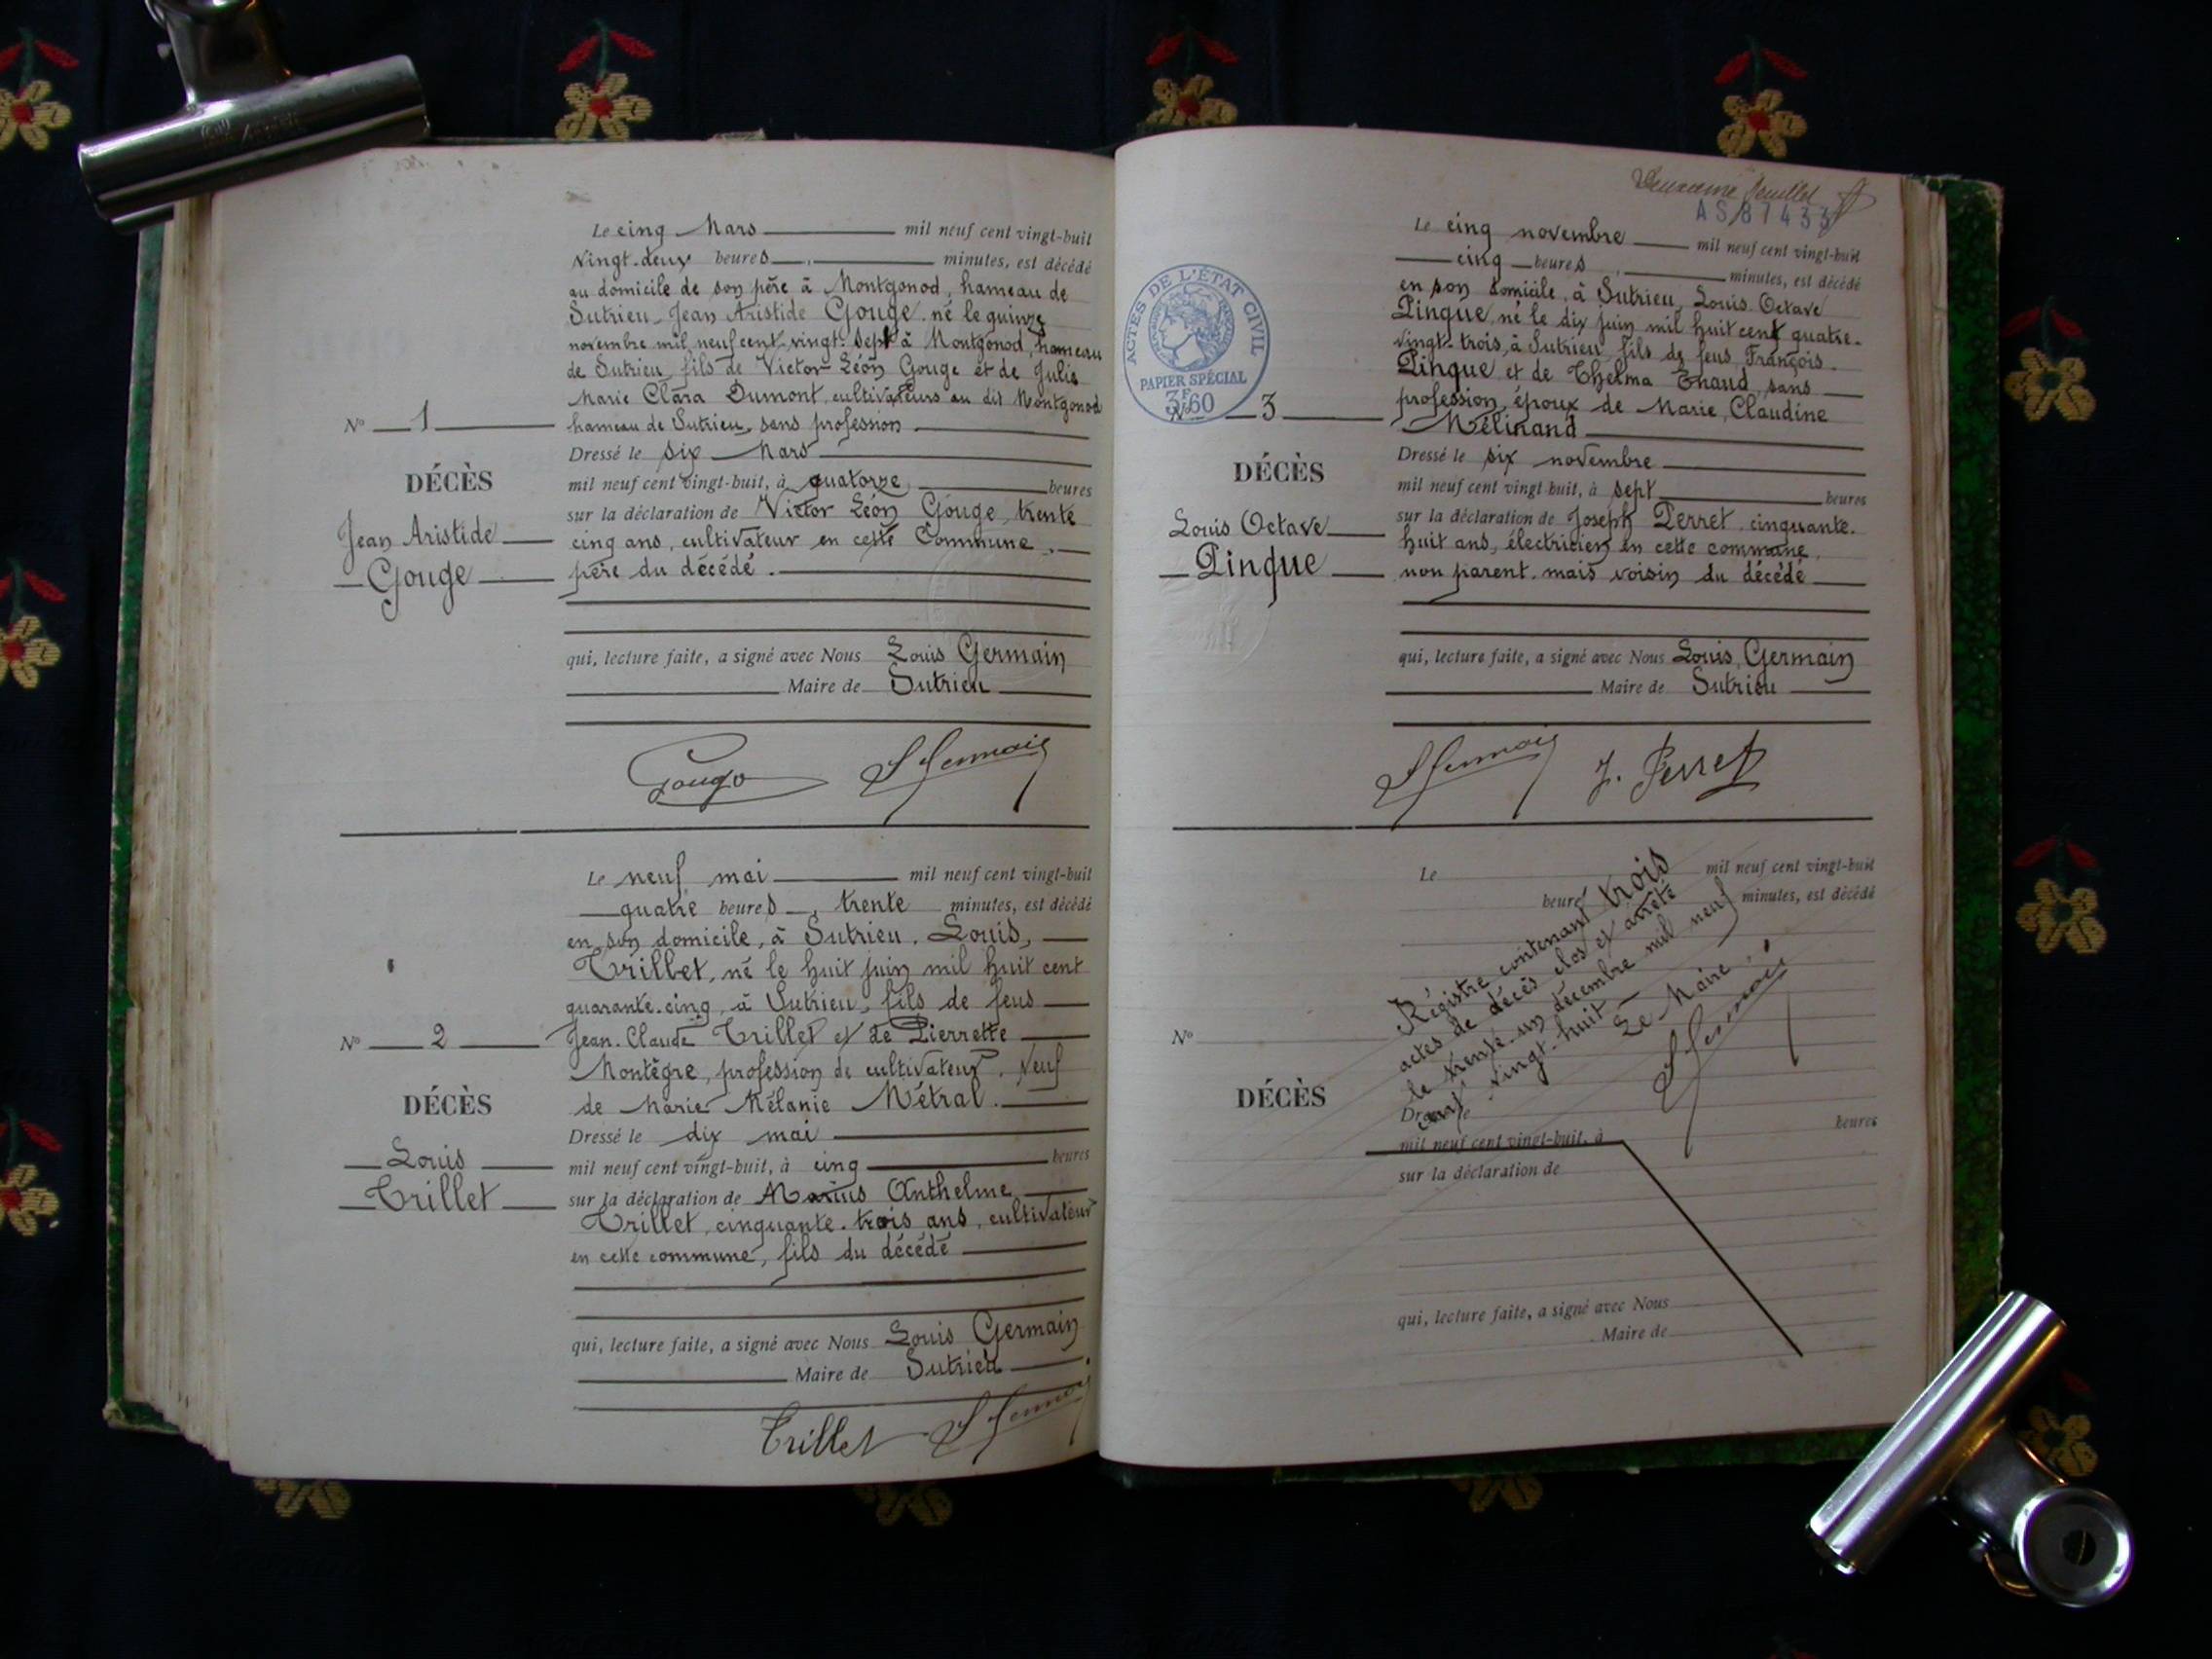 Le cinq Mars mil neuf cent vingt-huit
Vingt-deux heures minutes, est décédé
au domicile de son père à Montgonod, hameau de
Sutrieu, Jean Aristide Gouge, né le quinze
novembre mil neuf cent vingt-sept à Montgonod, hameau
de Sutrieu, fils de Victor Léon Gouge et de Julie
Marie Clara Dumont, cultivateurs au dit Montgonod
hameau de Sutrieu, sans profession
Dressé le six Mars
mil neuf cent vingt-huit, à quatorze heures
sur la déclaration de Victor Léon Gouge, trente
cinq ans, cultivateur en cette Commune,
père du décédé.
qui, lecture faite, a signé avec Nous Louis Germain
Maire de Sutrieu
N° 1
DÉCÈS
Jean Aristide
Gouge
Gouge LGermain
Le neuf mai mil neuf cent vingt-huit
quatre heures, trente minutes, est décédé
en son domicile, à Sutrieu, Louis,
Trillet, né le huit juin mil huit cent
quarante-cinq, à Sutrieu, fils de feus
Jean-Claude Trillet et de Pierrette
Montègre, profession de cultivateur. Veuf
de Marie Mélanie Métral.
Dressé le dix mai
mil neuf cent vingt-huit, à cinq heures
sur la déclaration de Marius Anthelme
Trillet, cinquante-trois ans, cultivateur
en cette commune, fils du décédé
qui, lecture faite, a signé avec Nous Louis Germain
Maire de Sutrieu
N° 2
DÉCÈS
Louis
Trillet
Trillet LGermain
Deuxième feuillet
AS 87433
ACTES DE L'ÉTAT CIVIL
PAPIER SPÉCIAL
3F60
Le cinq novembre mil neuf cent vingt-huit
cinq heures minutes, est décédé
en son domicile, à Sutrieu, Louis Octave
Pinque, né le dix juin mil huit cent quatre-
vingt-trois, à Sutrieu, fils de feus François
Pinque et de Thelma Enaud, sans
profession, époux de Marie, Claudine
Mélinand
Dressé le six novembre
mil neuf cent vingt-huit, à sept heures
sur la déclaration de Joseph Perret, cinquante-
huit ans, électricien en cette commune,
non parent, mais voisin du décédé
qui, lecture faite, a signé avec Nous Louis Germain
Maire de Sutrieu
N° 3
DÉCÈS
Louis Octave
Pinque
LGermain J. Perret
Le mil neuf cent vingt-huit
heure minutes, est décédé
Régistre contenant trois
actes de décès clos et arrêté
le trente-un décembre mil neuf
cent vingt-huit
Le Maire,
LGermain
N°
DÉCÈS
Dressé le
mil neuf cent vingt-huit, à heures
sur la déclaration de
qui, lecture faite, a signé avec Nous
Maire de